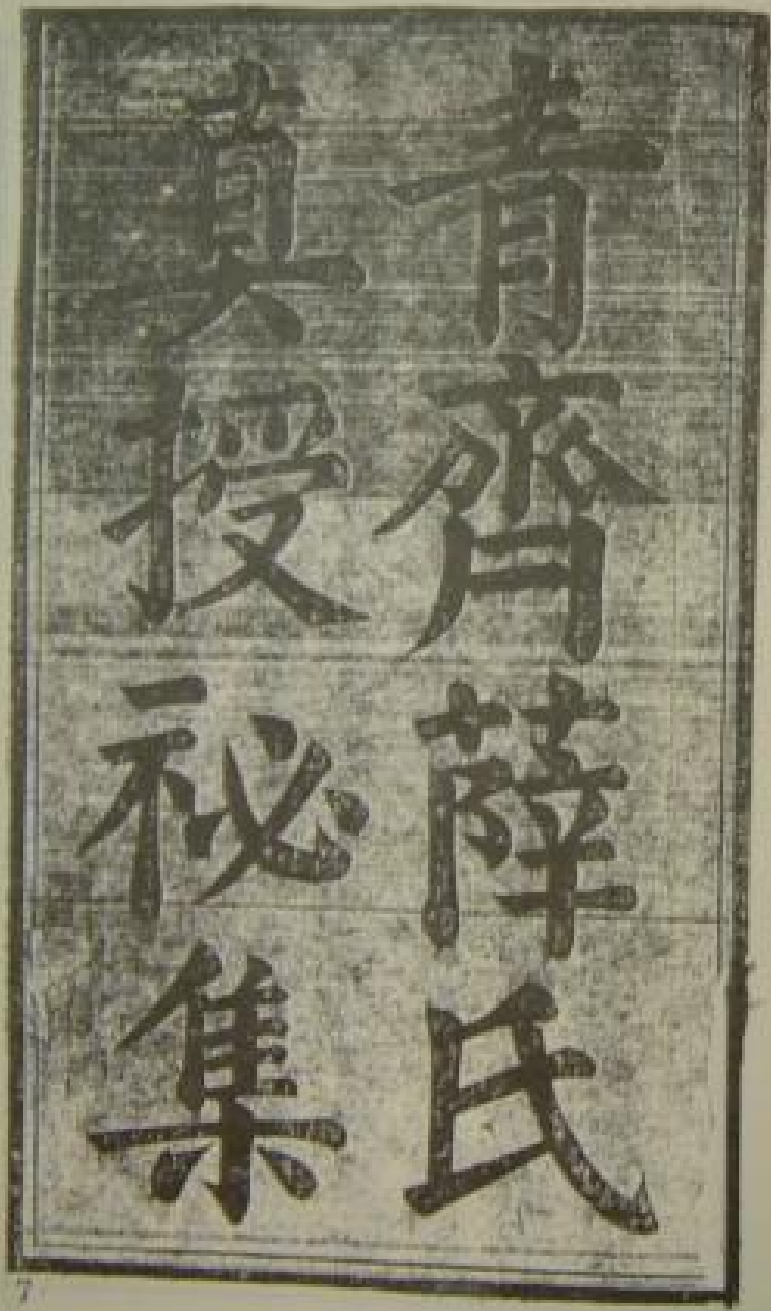 青齊薛氏
真授祕集
7